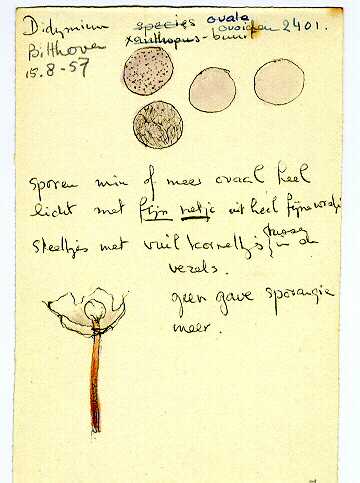 Didymium species ovale
xanthopus - ovoideu 2401.
Bilthoven
15.8-57
sporen min of meer ovaal heel
licht met fijn netje uit heel fijne
steeltjes met vuil korreltjes tussen de
vezels.
geen gave sporangie
meer.